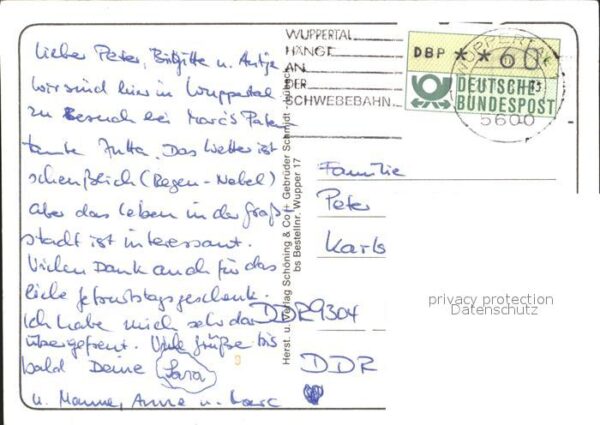 Lieber Peter, Birgitte u. Antje
wir sind hier in Wuppertal
zu Besuch bei Marc's Paten
tante Jutta. Das Wetter ist
scheußlich (Regen-Nebel)
aber das Leben in der Groß
stadt ist interessant.
Vielen Dank auch für das
liebe Geburtstagsgeschenk.
Ich habe mich sehr da
übergefreut. Viele Grüße bis
bald Deine Sara
u. Manne, Anne u. Marc
WUPPERTAL
HÄNGT
AN
DER
SCHWEBEBAHN
DBP **60
DEUTSCHE
BUNDESPOST
WUPPERTAL
5600
Herst. u. Verlag Schöning & Co + Gebrüder Schmidt - Lübeck
bs Bestellnr. Wupper 17
Familie
Peter
Karls
DDR 9304
DDR
privacy protection
Datenschutz